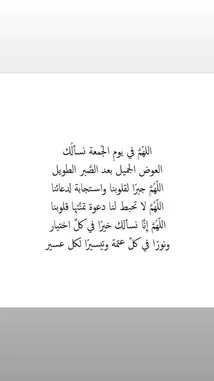 اللهُمَّ في يوم الجمعة نسألُك
العوض الجميل بعد الصَّبر الطويل
اللّهُمَّ جبرًا لقلوبنا واستجابة لدعائنا
اللّهُمَّ لا تحبط لنا دعوة تمنَّتها قلوبنا
اللّهُمَّ إنَّا نسألك خيرًا في كلّ اختيار
ونورًا في كلّ عتمة وتيسيرًا لكل عسير